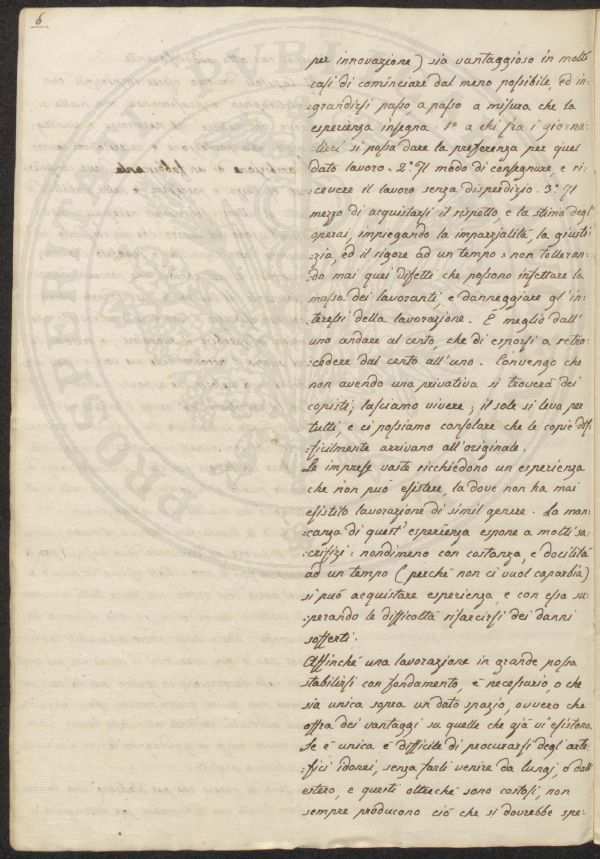 6
per innovazione) sia vantaggioso in molti
casi di cominciare dal meno possibile, ed in-
-grandirsi passo, a passo a misura che la
esperienza insegna. 1.o a chi fra i giorna-
-lieri si possa dare la preferenza per quel
dato lavoro. 2.o Il modo di consegnare, e ri-
cevere il lavoro senza disperdizio. 3.o Il
mezzo di acquistarsi il rispetto, e la stima degl'
operai, impiegando la imparzialità, la giusti-
-zia, ed il rigore ad un tempo: non tolleran-
-do mai quei difetti che possono infettare la
massa dei lavoranti, e danneggiare gl'in-
-teressi della lavorazione. È meglio dall'
uno andare al cento, che di esporsi a retro-
-cedere dal cento all'uno. Convengo che
non avendo una privativa si troverà dei
copisti; lasciamo vivere; il sole si leva per
tutti, e ci possiamo consolare che le copie dif-
-ficilmente arrivano all'originale.
Le imprese vaste ricchiedono un esperienza
che non può esistere, la dove non ha mai
esistito lavorazione di simil genere. La man-
-canza di quest' esperienza espone a molti sa-
-crifizi: nondimeno con costanza, e docilità
ad un tempo (perchè non ci vuol caparbia)
si può acquistare esperienza, e con essa su-
-perando le difficoltà risarcirsi dei danni
sofferti.
Affinchè una lavorazione in grande possa
stabilirsi con fondamento, è necessario, o che
sia unica sopra un dato spazio, ovvero che
offra dei vantaggi su quelle che già vi esistono.
Se è unica è difficile di procurarsi degl'arte-
-fici idonei, senza farli venire da lungi, o dall'
estero, e questi oltrechè sono costosi, non
sempre producono ciò che si dovrebbe spe-